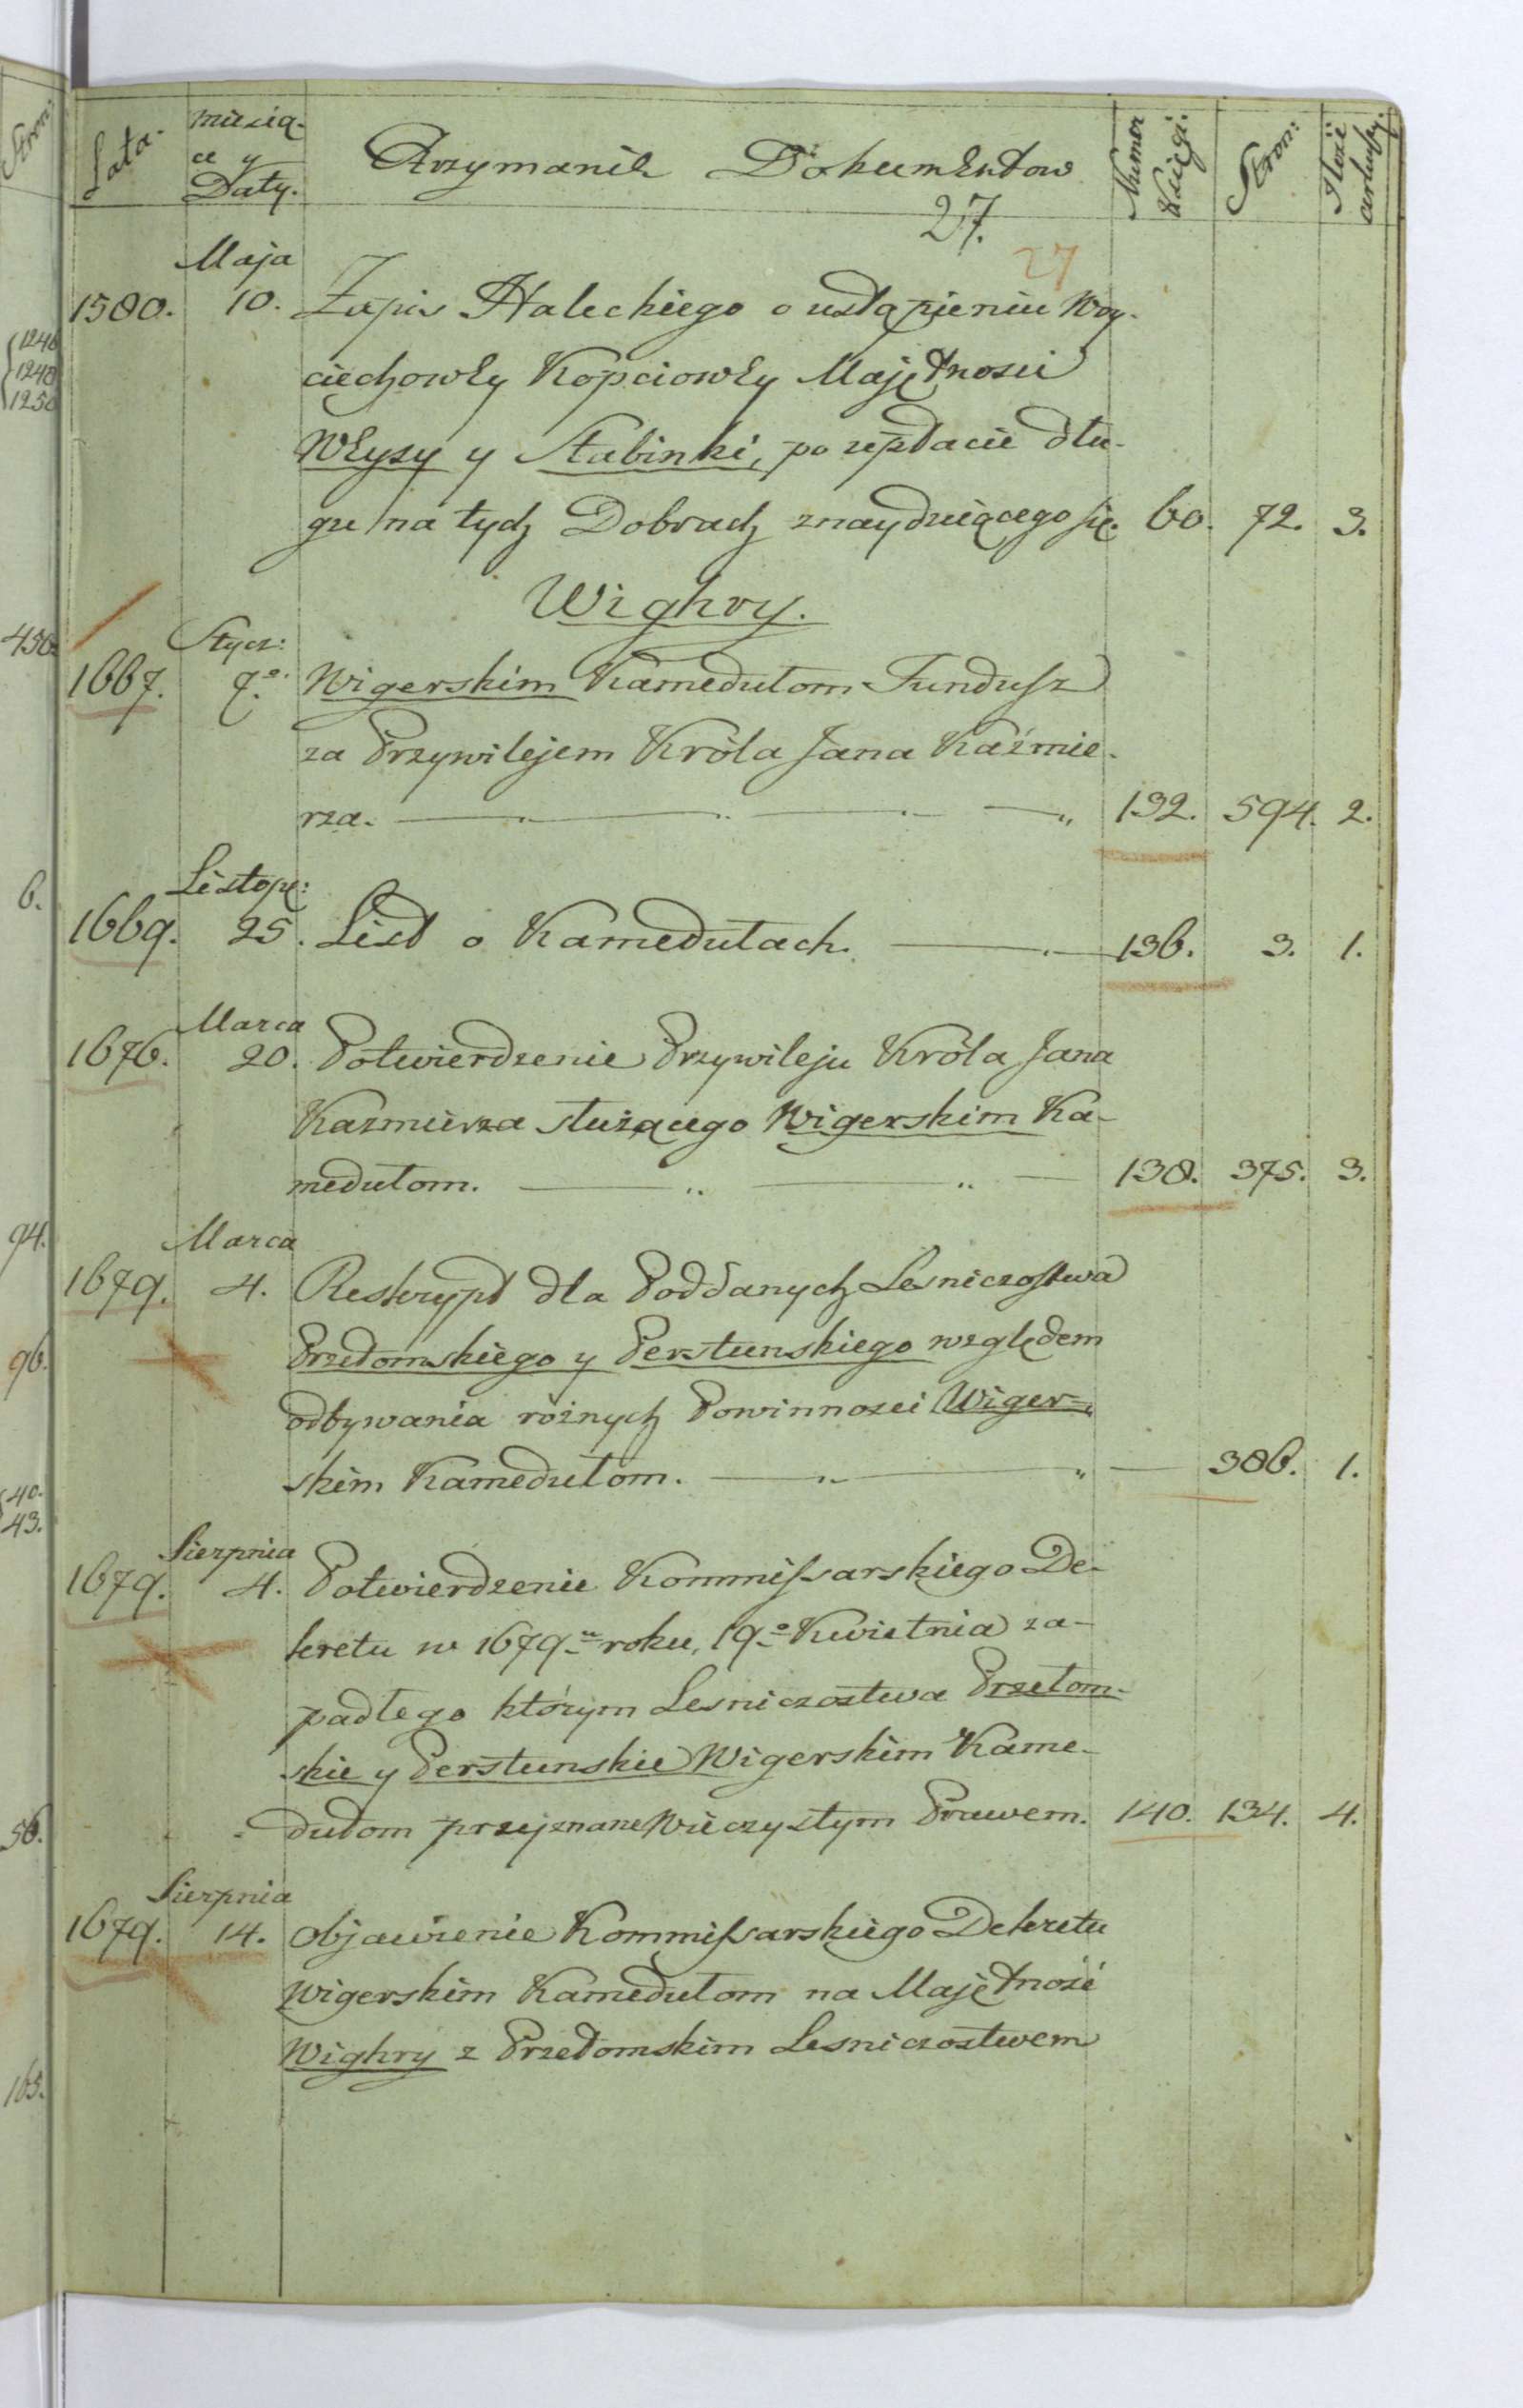 Stron:
Lata.
miesią-
ce y
Daty.
Brzmanie Dokumentow
Numer
Księgi.
Stron:
Ilość
arkuszy.
27.
27
Maja
1580. 10. Zapis Haleckiego o ustąpieniu Woy-
ciechowey Kopciowey Majętnosci
1246
1248
1250
Weysy y Stabinki, po zepłacie dłu-
gu na tych Dobrach znayduiącego się. 60. 72. 3.
Wighry.
450.
Stycz:
1667. 7.° Wigerskim Kamedułom Fundusz
za Przywilejem Króla Jana Kaźmie-
rza. 132. 594. 2.
6.
Listop:
1669. 25. List o Kamedułach. 136. 3. 1.
Marca
1676. 20. Potwierdzenie Przywileju Króla Jana
Kazmierza służącego Wigerskim Ka-
medułom. 138. 375. 3.
94.
Marca
1679. 4. Reskrypt dla Poddanych Lesniczostwa
96.
Przełomskiego y Perstunskiego względem
odbywania rożnych Powinnosci Wiger-
skim Kamedułom. — 386. 1.
40.
43.
Sierpnia
1679. 4. Potwierdzenie Kommissarskiego De-
kretu w 1679.u roku, 19.o Kwietnia za-
padłego którym Lesniczostwa Przełom-
skie y Perstunskie Wigerskim Kame-
dułom przyznane Wieczystym Prawem. 140. 134. 4.
56.
Sierpnia
1679. 14. Objawienie Kommissarskiego Dekretu
Wigerskim Kamedułom na Majętność
Wighry z Przełomskim Lesniczostwem
165.